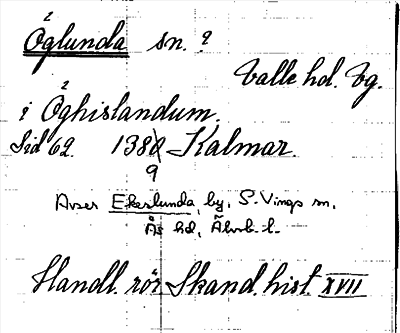 Öglunda sn. ?
Valle hd. Vg.
i Öghislandum.
Sid 62. 1388 Kalmar.
9
Avser Ekeslunda, by, S. Vings sn.
Ås hd, Älvsb. l.
Handl. rör Skand. hist. XVII